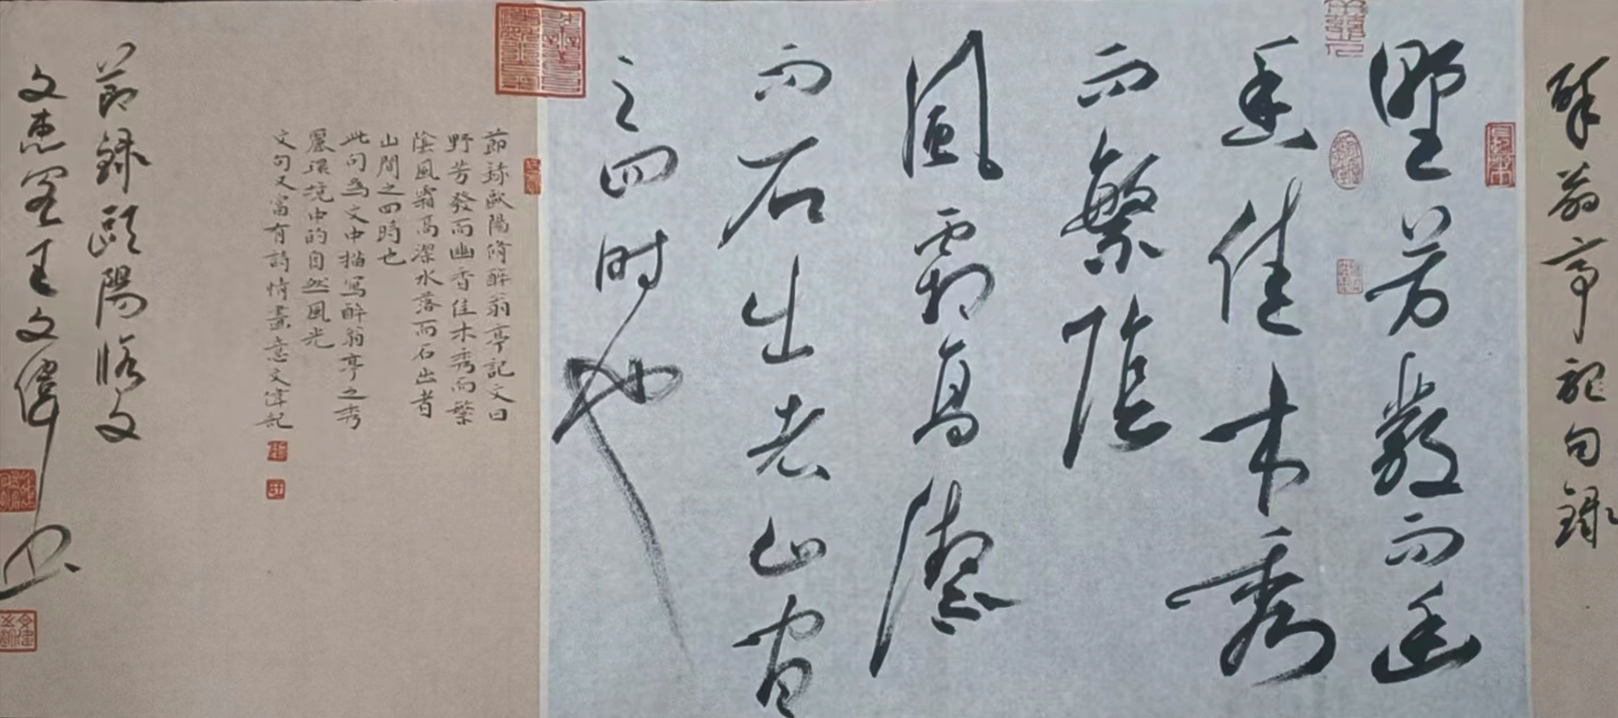 醉翁亭記句錄
野芳發而幽
香佳木秀
而繁陰
風霜高潔
而石出者山間
之四时也
節錄歐陽脩醉翁亭記文曰
野芳發而幽香佳木秀而繁
陰風霜高潔水落而石出者
山間之四時也
此句為文中描寫醉翁亭之秀
麗環境中的自然風光
文句又富有詩情畫意文偉記
節錄歐陽脩文
文惠王文偉